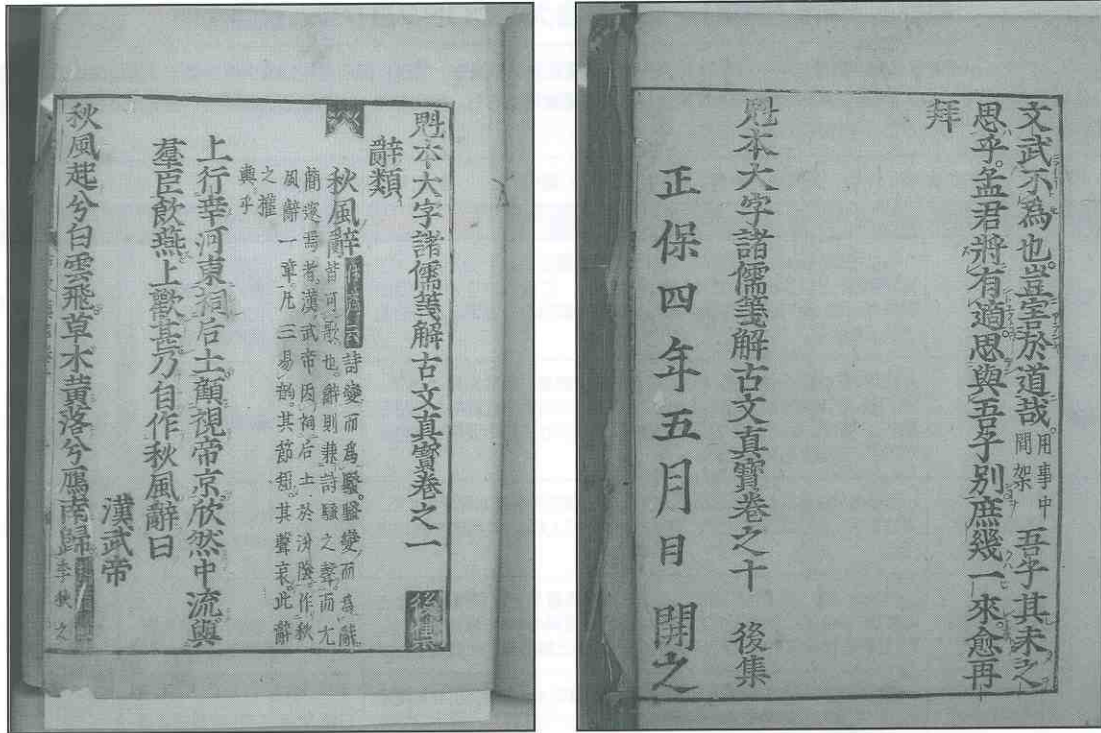 魁本大字諸儒箋解古文真寳卷之一
辭類
秋風辭 詩變而爲騷騷變而爲辭
皆可歌也辭則兼詩騷之聲而尤
簡邃焉者漢武帝因祠后土於汾陰作秋
風辭一章凡三易韻其節短其聲哀此辭
之權
輿乎
上行幸河東祠后土顧視帝京欣然中流與
羣臣飲燕上歡甚乃自作秋風辭曰
漢武帝
秋風起兮白雲飛草木黄落兮鴈南歸
文武不爲也豈害於道哉用事中間架吾子其未之
思乎孟君將有適思與吾子别庶幾一來愈再
拜
魁本大字諸儒箋解古文真寳卷之十 後集
正保四年五月日 開之